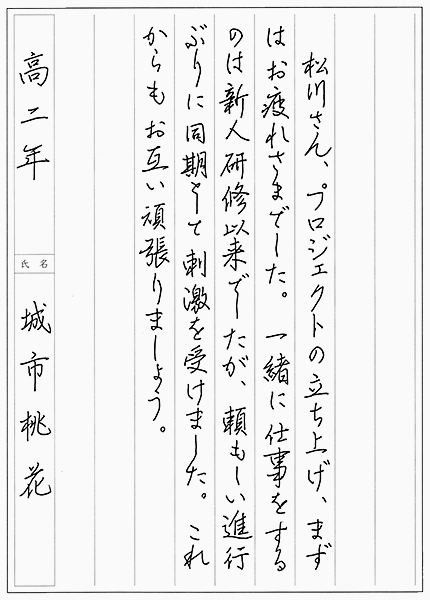 松川さん、プロジェクトの立ち上げ、まず
はお疲れさまでした。一緒に仕事をする
のは新人研修以来でしたが、頼もしい進行
ぶりに同期として刺激を受けました。これ
からもお互い頑張りましょう。
高二年
氏名
城市桃花